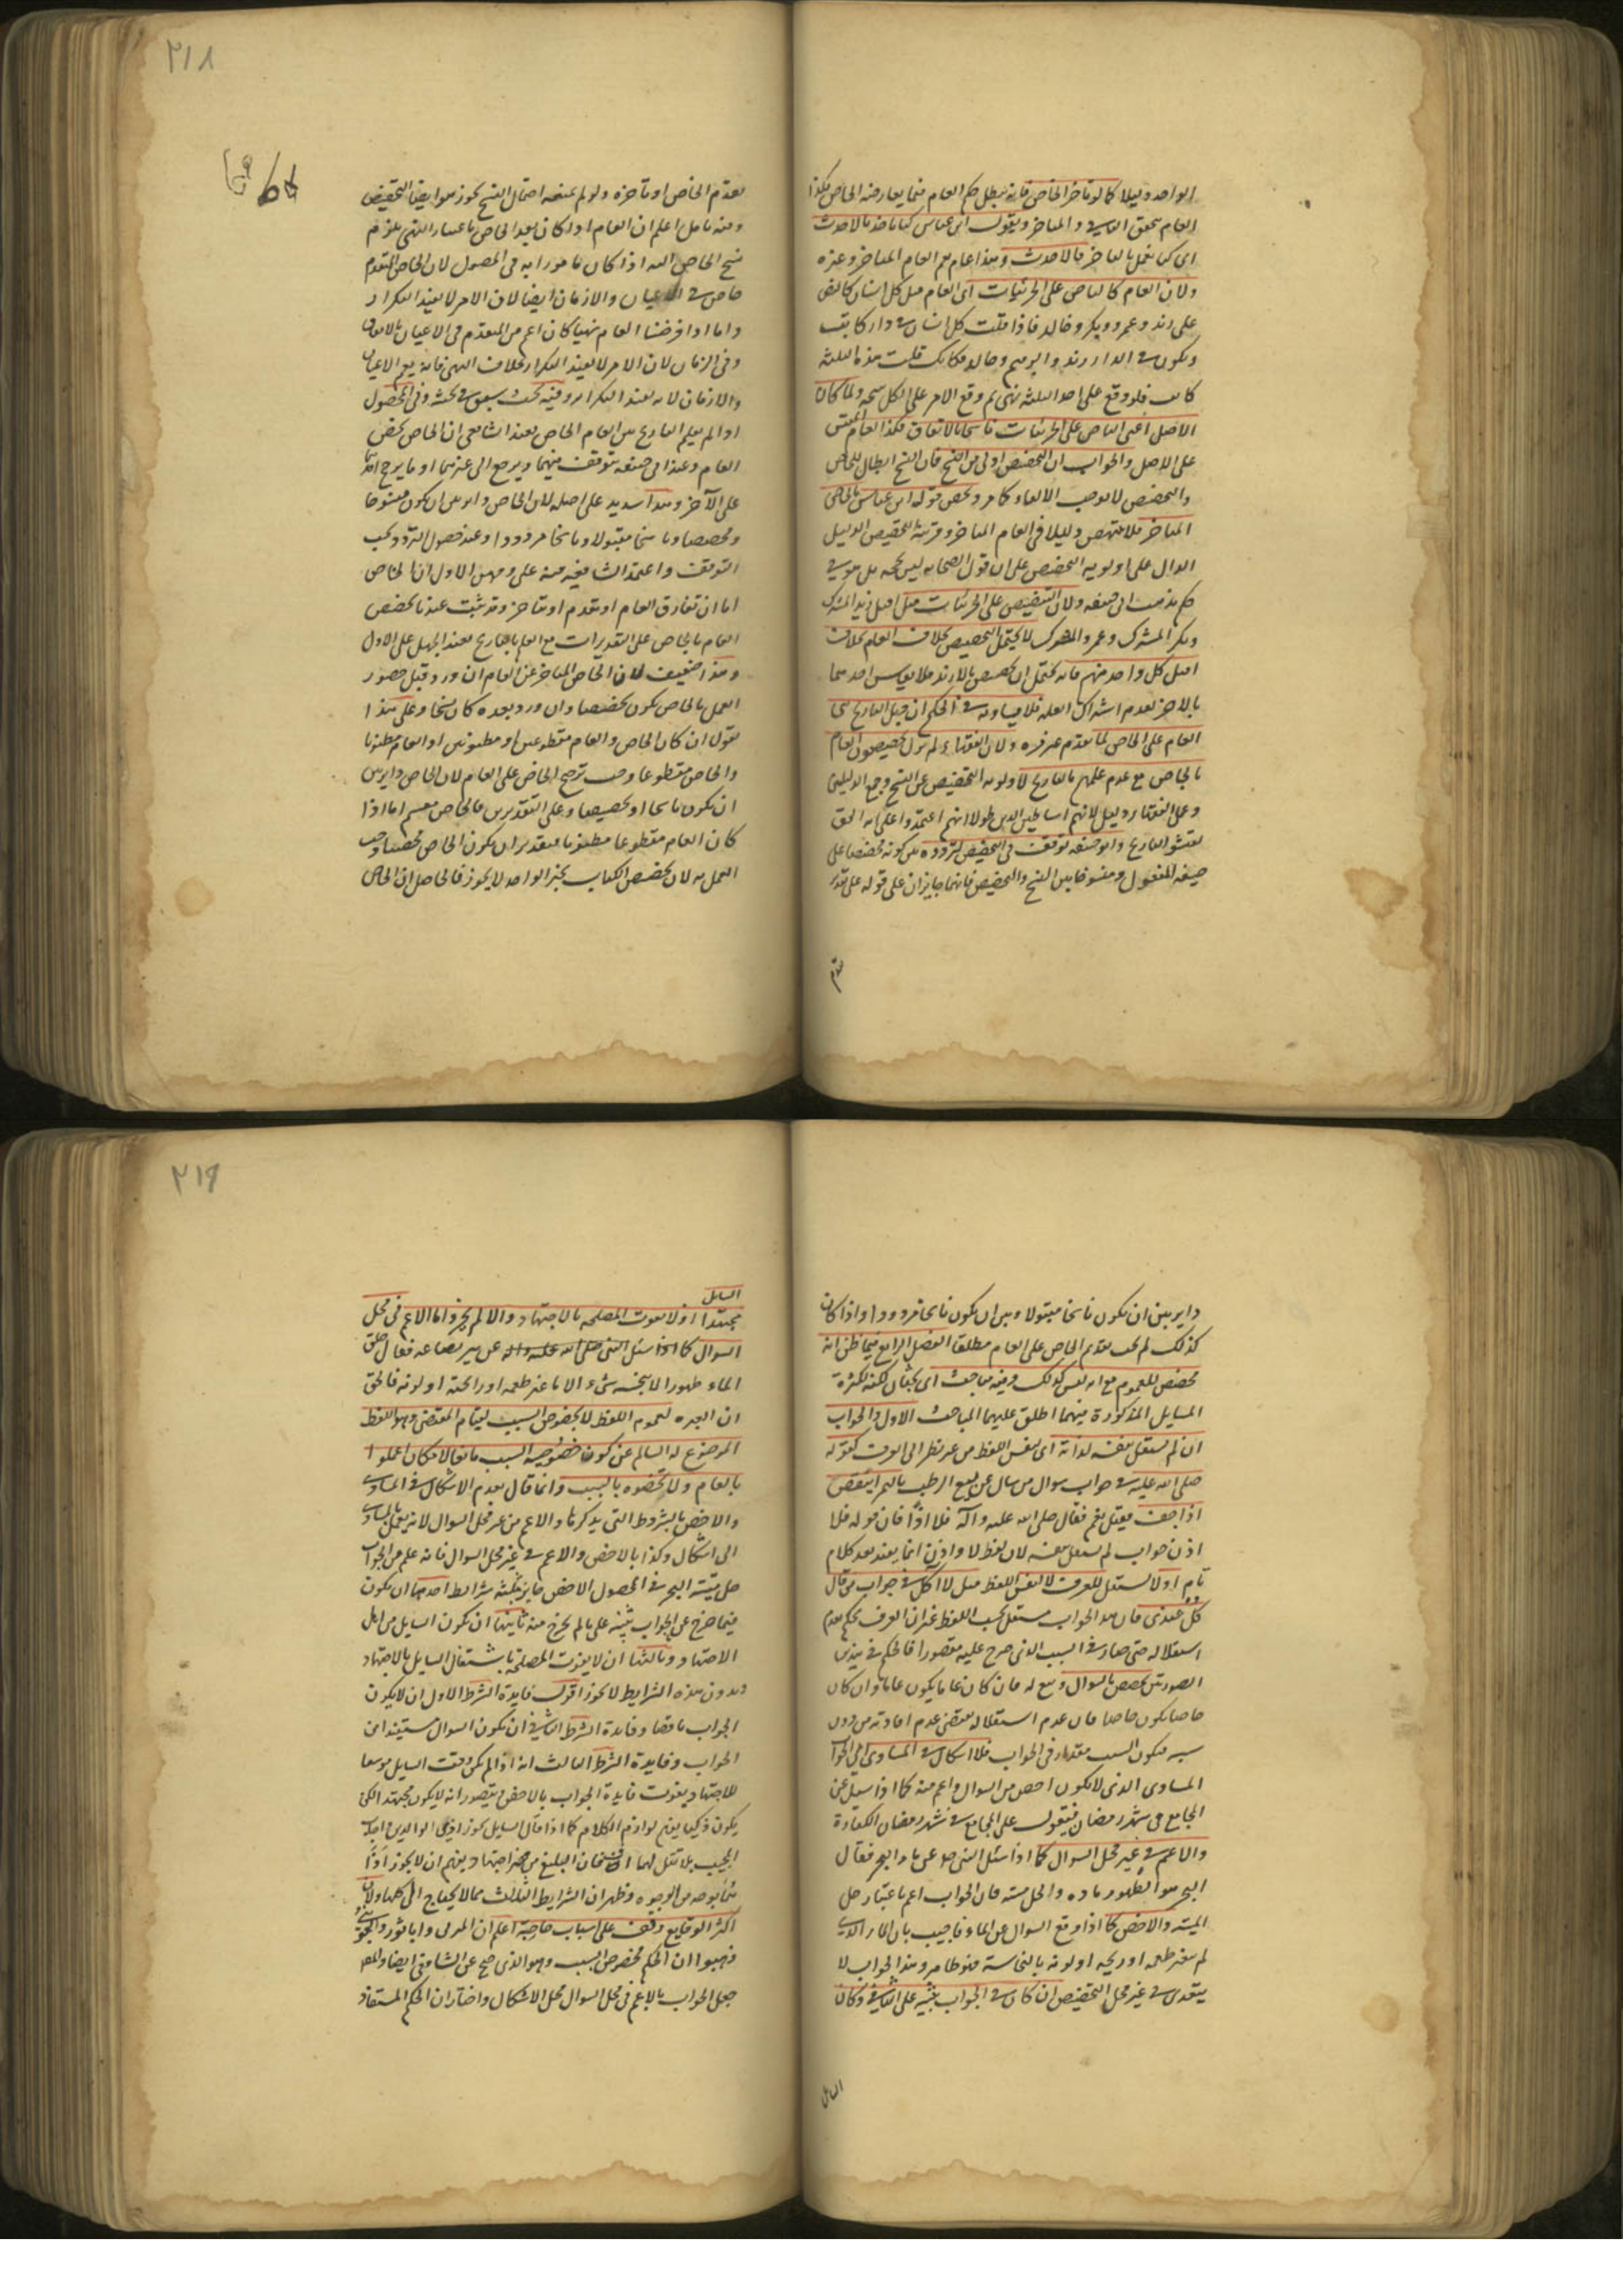 الواحد دليلا كما لو تأخر الخاص فانه يبطل حكم العام فيما يعارضه الخاص فكذا
العام بتحقق التنافي والمتاخر ويقول ابن عباس كنا ناخذ بالاحدث
اي كنا نعمل بالمتاخر فالاحدث وهذا عام مع العام المتاخر وغيره
ولان العام كالناص على الجزئيات اي العام مثل كل انسان كالنص
على زيد وعمرو وبكر وخالد فاذا قلت كل انسان في دار كاتب
ويكون في الدار زيد وابرهيم وخالد فكانك قلت هذه الثلثة
كاتب فلو وقع على احد الثلثة نهي ثم وقع الامر على الكل نسخه ولما كان
الاصل اعني الناص على الجزئيات ناسخا بالاتفاق فكذا العام المقيس
على الاصل والجواب ان التخصيص اولى من النسخ فان النسخ ابطال للخاص
والتخصيص لا يوجب الالغاء كما مر ويخص قوله ابن عباس بالخاص
المتاخر فلا ينتهض دليلا في العام المتاخر وقرينة التخصيص الدليل
الدال على اولوية التخصيص على ان قول الصحابه ليس بحجه بل هو في
حكم مذهب ابي حنيفه ولان التنصيص على الجزئيات مثل اقتل زيد المشرك
وبكر المشرك وعمرو المشرك لا يحتمل التخصيص بخلاف العام بخلاف
اقتل كل واحد منهم فانه يحتمل ان يخصص بالا زيد فلا يقاس احدهما
بالاخر لعدم اشتراك العله فلا يساويه في الحكم ان جهل التاريخ بني
العام على الخاص لما تقدم عن قره ولان الفقهاء لم يزل يخصصون العام
بالخاص مع عدم علمهم بالتاريخ لاولوية التخصيص عن النسخ وجمع الدليلين
وعمل الفقهاء دليل لانهم اساطين الدين فلولا انهم اعتمدوا على انه الحق
لفتشوا التاريخ وابو حنيفه توقف في التخصيص لتردده بين كونه مخصصا على
صيغة المفعول ومنسوخا بين النسخ والتخصيص فانهما جايزان على قوله على تقدير
تقدم
٢١٨
تقدم الخاص او تأخره ولو لم يمنعه احتمال النسخ يجوز هو ايضا التخصيص
وفيه تامل اعلم ان العام اذا كان بعد الخاص باعتبار النهي يلزم
نسخ الخاص اليه اذا كان مامورا به في المحصول لان الخاص المتقدم
خاص في الاعيان والازمان ايضا لان الامر لا يفيد التكرار
واما اذا فرضنا العام نهيا كان اعم من المتقدم في الاعيان بالاتفاق
وفي الزمان لان الامر لا يفيد التكرار بخلاف النهي فانه يعم الاعيان
والازمان لانه يفيد التكرار وفيه بحث سبق في بحثه وفي المحصول
اذا لم يعلم التاريخ بين العام الخاص فعند الشافعي ان الخاص يخص
العام وعند ابي حنيفه يتوقف فيهما ويرجع الى غيرهما او ما يرجح احدهما
على الآخر وهذا سديد على اصله لان الخاص داير بين ان يكون منسوخا
ومخصصا وناسخا مقبولا وناسخا مردودا وعند حصول التردد يجب
التوقف واعتمد الشافعية فيه على وجهين الاول ان الخاص
اما ان تقارن العام او تقدم او تتاخر وقد ثبت عندنا تخصيص
العام بالخاص على التقديرات مع العلم بالتاريخ فعند الجهل على الاول
وهذا ضعيف لان الخاص المتاخر عن العام ان ورد قبل حضور
العمل بالخاص يكون تخصيصا وان ورد بعده كان نسخا وعلى هذا
نقول ان كان الخاص والعام مقطوعين او مظنونين او العام مظنونا
والخاص مقطوعا وجب ترجيح الخاص على العام لان الخاص داير بين
ان يكون ناسخا او تخصيصا وعلى التقديرين فالخاص معتبر اما اذا
كان العام مقطوعا مظنونا فبتقدير ان يكون الخاص مخصصا وجب
العمل به لان تخصيص الكتاب بخبر الواحد لا يجوز فالحاصل ان الخاص
داير بين ان يكون ناسخا مقبولا وبين ان يكون ناسخا مردودا واذا كان
كذلك لم يجب تقديم الخاص على العام مطلقا الفصل الرابع فيما ظن انه
مخصص للعموم مع انه ليس كذلك وفيه مباحث اي بحثان لكنه لكثرة
المسايل المذكورة فيهما اطلق عليهما المباحث الاول الجواب
ان لم يستقل بنفسه لذاته اي لنفس اللفظ من غير نظر الى العرف كقوله
صلى الله عليه في جواب سوال من سال عن بيع الرطب بالتمر اينقص
اذا جف فقيل نعم فقال صلى الله عليه وآله فلا اذا فان قوله فلا
اذن جواب لم يستقل بنفسه لان لفظ لا واذن انما يفيد بعد كلام
تام اولا يستقل للعرف لا لنفس اللفظ مثل لا اكل في جواب من قال
كل عندي فان هذا الجواب مستقل بحسب اللفظ غير ان العرف يحكم بعدم
استقلاله حتى صار في السبب الذي خرج عليه مقصورا فالحكم في هذين
الصورتين يخصص بالسوال ويتبع له فان كان عاما يكون عاما وان كان
خاصا يكون خاصا فان عدم استقلاله يقتضي عدم افادته من دون
سببه فيكون السبب مقدما في الجواب فلا اشكال في المساوي اي الجواب
المساوي الذي لا يكون اخص من السوال واعم منه كما اذا سئل عن
الجامع في شهر رمضان فيقول على الجامع في شهر رمضان الكفارة
والاعم في غير محل السوال كما اذا سئل النبي صم عن ماء البحر فقال
البحر هو الطهور ماءه والحل ميته فان الجواب اعم باعتبار حل
الميتة والاخص كما اذا وقع السوال عن الماء فاجيب بان الماء الذي
لم يتغير طعمه او ريحه او لونه بالنجاسة فهو طاهر وهذا الجواب لا
يتعدى في غير محل التخصيص ان كان في الجواب تنبيه على الباقي وكان
السايل
٢١٩
السايل
مجتهدا اولا يفوت المصلحة بالاجتهاد والا لم يجز واما الاعم في محل
السوال كما اذا سئل النبي صلى الله عليه واله عن بير بضاعه فقال خلق
الماء طهورا لا ينجسه شيء الا ما غير طعمه او رائحته او لونه فالحق
ان العبره لعموم اللفظ لا بخصوص السبب لقيام المقتضي وهو اللفظ
الموضوع له السالم عن كون خصوصية السبب مانعا لامكان اعملوا
بالعام ولا تخصوه بالسبب وانما قال بعدم الاشكال في المساوي
والاخص بالشروط التي يذكرها والاعم من غير محل السوال لانه يعمل بالمساوي
الى اشكال وكذا بالاخص والاعم في غير محل السوال فانه علم من الجواب
حل ميتة البحر في المحصول الاخص جايز بثلثة شرايط احدها ان يكون
فيما خرج عن الجواب تنبيه على ما لم يخرج منه ثانيها ان يكون السايل من اهل
الاجتهاد وثالثها ان لا يفوت المصلحة باشتغال السايل بالاجتهاد
وبدون هذه الشرايط لا يجوز اقول فايدة الشرط الاول ان لا يكون
الجواب ناقصا وفايدة الشرط الثاني ان يكون السوال مستفيدا من
الجواب وفايدة الشرط الثالث انه اذا لم يكن وقت السايل موسعا
للاجتهاد يفوت فايدة الجواب بالاخص يتصور انه لا يكون مجتهدا لكن
يكون ذكيا يفهم لوازم الكلام كما اذا قال السايل يجوز اذى الوالدين اجاب
المجيب بلا تقل لهما اف فان البليغ من غير اجتهاد يفهم ان لا يجوز اذا
هما بوجه من الوجوه وظهر ان الشرايط الثلاث مما لا يحتاج الى كلها ولان
اكثر الوقايع وقعت على اسباب خاصة اعلم ان المزني وابا ثور والجويني
ذهبوا ان الحكم مخصوص السبب وهو الذي صح عن الشافعي ايضا والمص
جعل الجواب بالاعم في محل السوال محل الاشكال واختار ان الحكم المستفاد